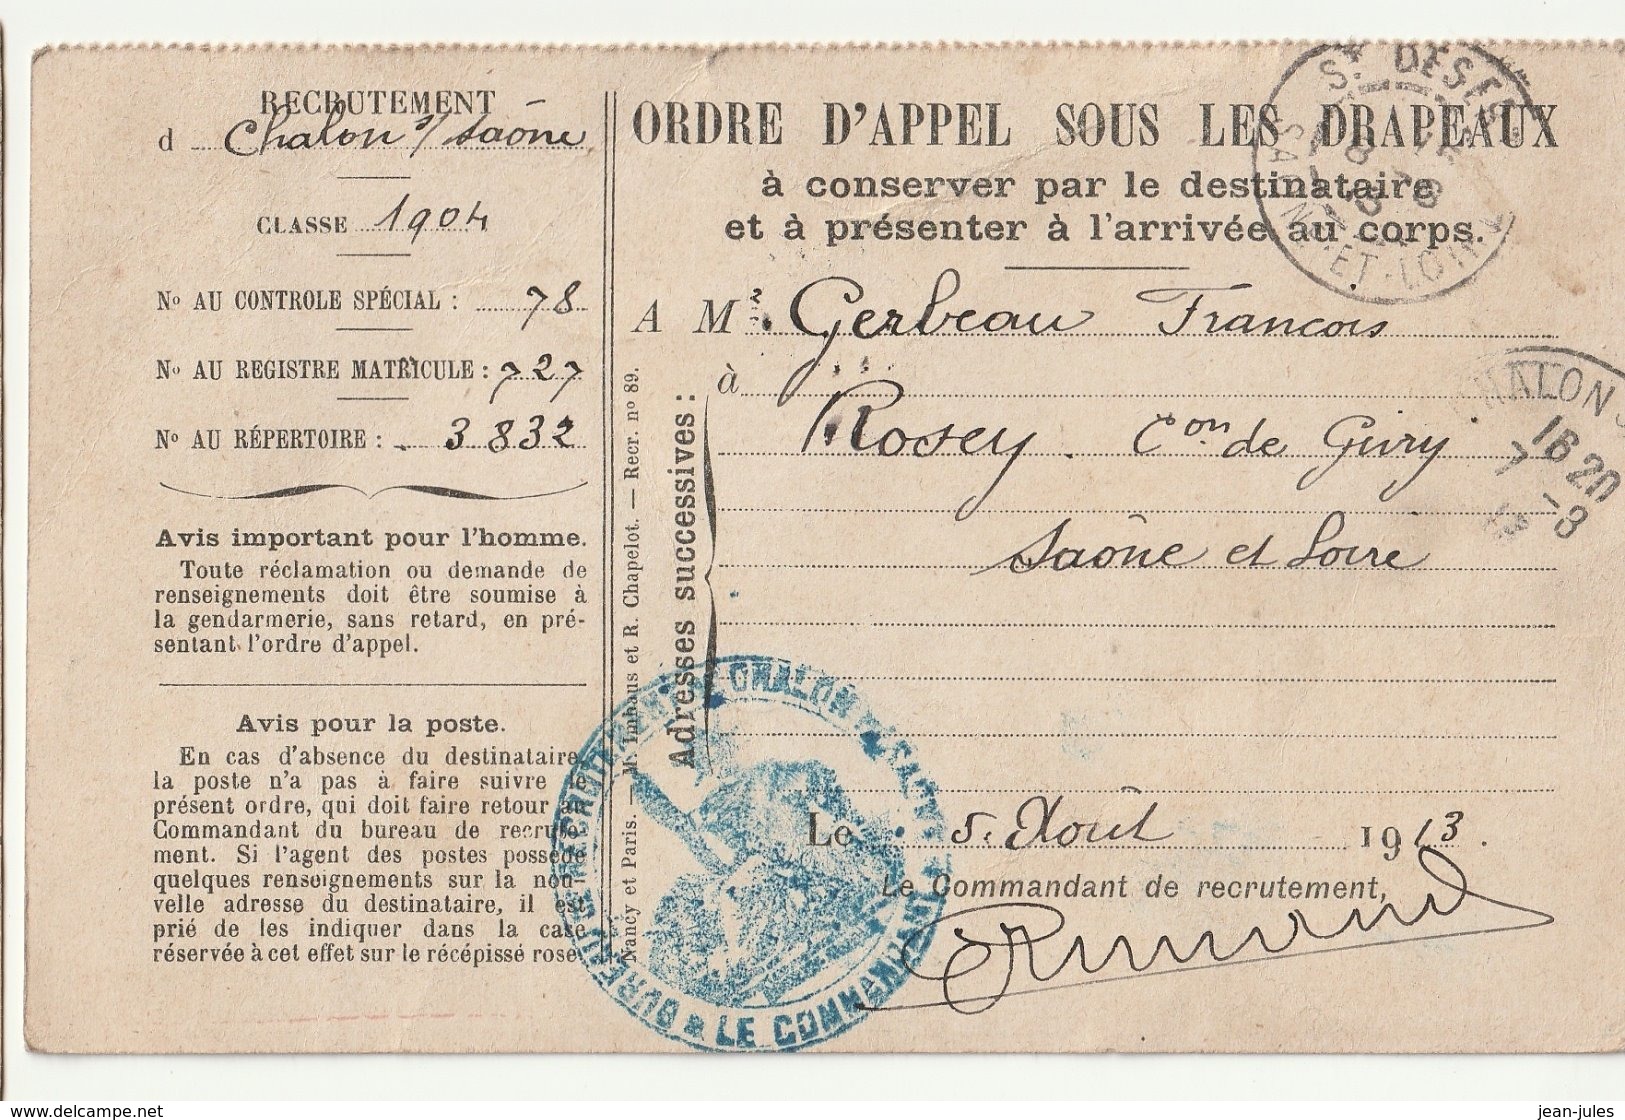 RECRUTEMENT
d Chalon s/ Saône
CLASSE 1904
No AU CONTROLE SPÉCIAL : 78
No AU REGISTRE MATRICULE : 727
No AU RÉPERTOIRE : 3832
Avis important pour l'homme.
Toute réclamation ou demande de
renseignements doit être soumise à
la gendarmerie, sans retard, en pré-
sentant l'ordre d'appel.
Avis pour la poste.
En cas d'absence du destinataire,
la poste n'a pas à faire suivre le
présent ordre, qui doit faire retour au
Commandant du bureau de recrute-
ment. Si l'agent des postes possède
quelques renseignements sur la nou-
velle adresse du destinataire, il est
prié de les indiquer dans la case
réservée à cet effet sur le récépissé rose.
Nancy et Paris. — M. Imhaus et R. Chapelot. — Recr. no 89.
ORDRE D'APPEL SOUS LES DRAPEAUX
à conserver par le destinataire
et à présenter à l'arrivée au corps.
A M. Gerbeau Francois
Adresses successives :
à Rosey. Con de Givry
Saône et Loire
Le 5 Août 1913.
Le Commandant de recrutement,
St DÉSERT
SAONE-ET-LOIRE
CHALON S
16 20
7 -8
13
LE COMMANDANT
BUREAU DE RECRUTEMENT DE CHALON S SAÔNE
www.delcampe.net
jean-jules